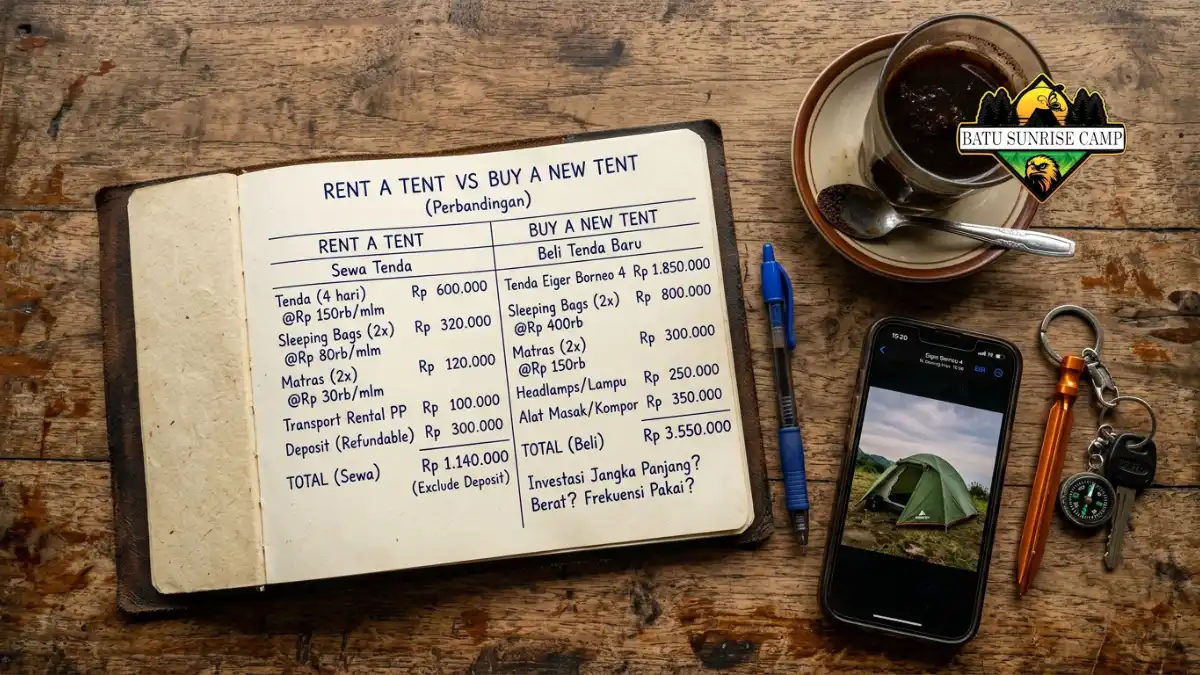 RENT A TENT VS BUY A NEW TENT
(Perbandingan)
RENT A TENT
Sewa Tenda
Tenda (4 hari) Rp 600.000
@Rp 150rb/mlm
Sleeping Bags (2x) Rp 320.000
@Rp 80rb/mlm
Matras (2x) Rp 120.000
@Rp 30rb/mlm
Transport Rental PP Rp 100.000
Deposit (Refundable) Rp 300.000
TOTAL (Sewa) Rp 1.140.000
(Exclude Deposit)
BUY A NEW TENT
Beli Tenda Baru
Tenda Eiger Borneo 4 Rp 1.850.000
Sleeping Bags (2x) Rp 800.000
@Rp 400rb
Matras (2x) Rp 300.000
@Rp 150rb
Headlamps/Lampu Rp 250.000
Alat Masak/Kompor Rp 350.000
TOTAL (Beli) Rp 3.550.000
Investasi Jangka Panjang?
Berat? Frekuensi Pakai?
BATU SUNRISE CAMP
15:20